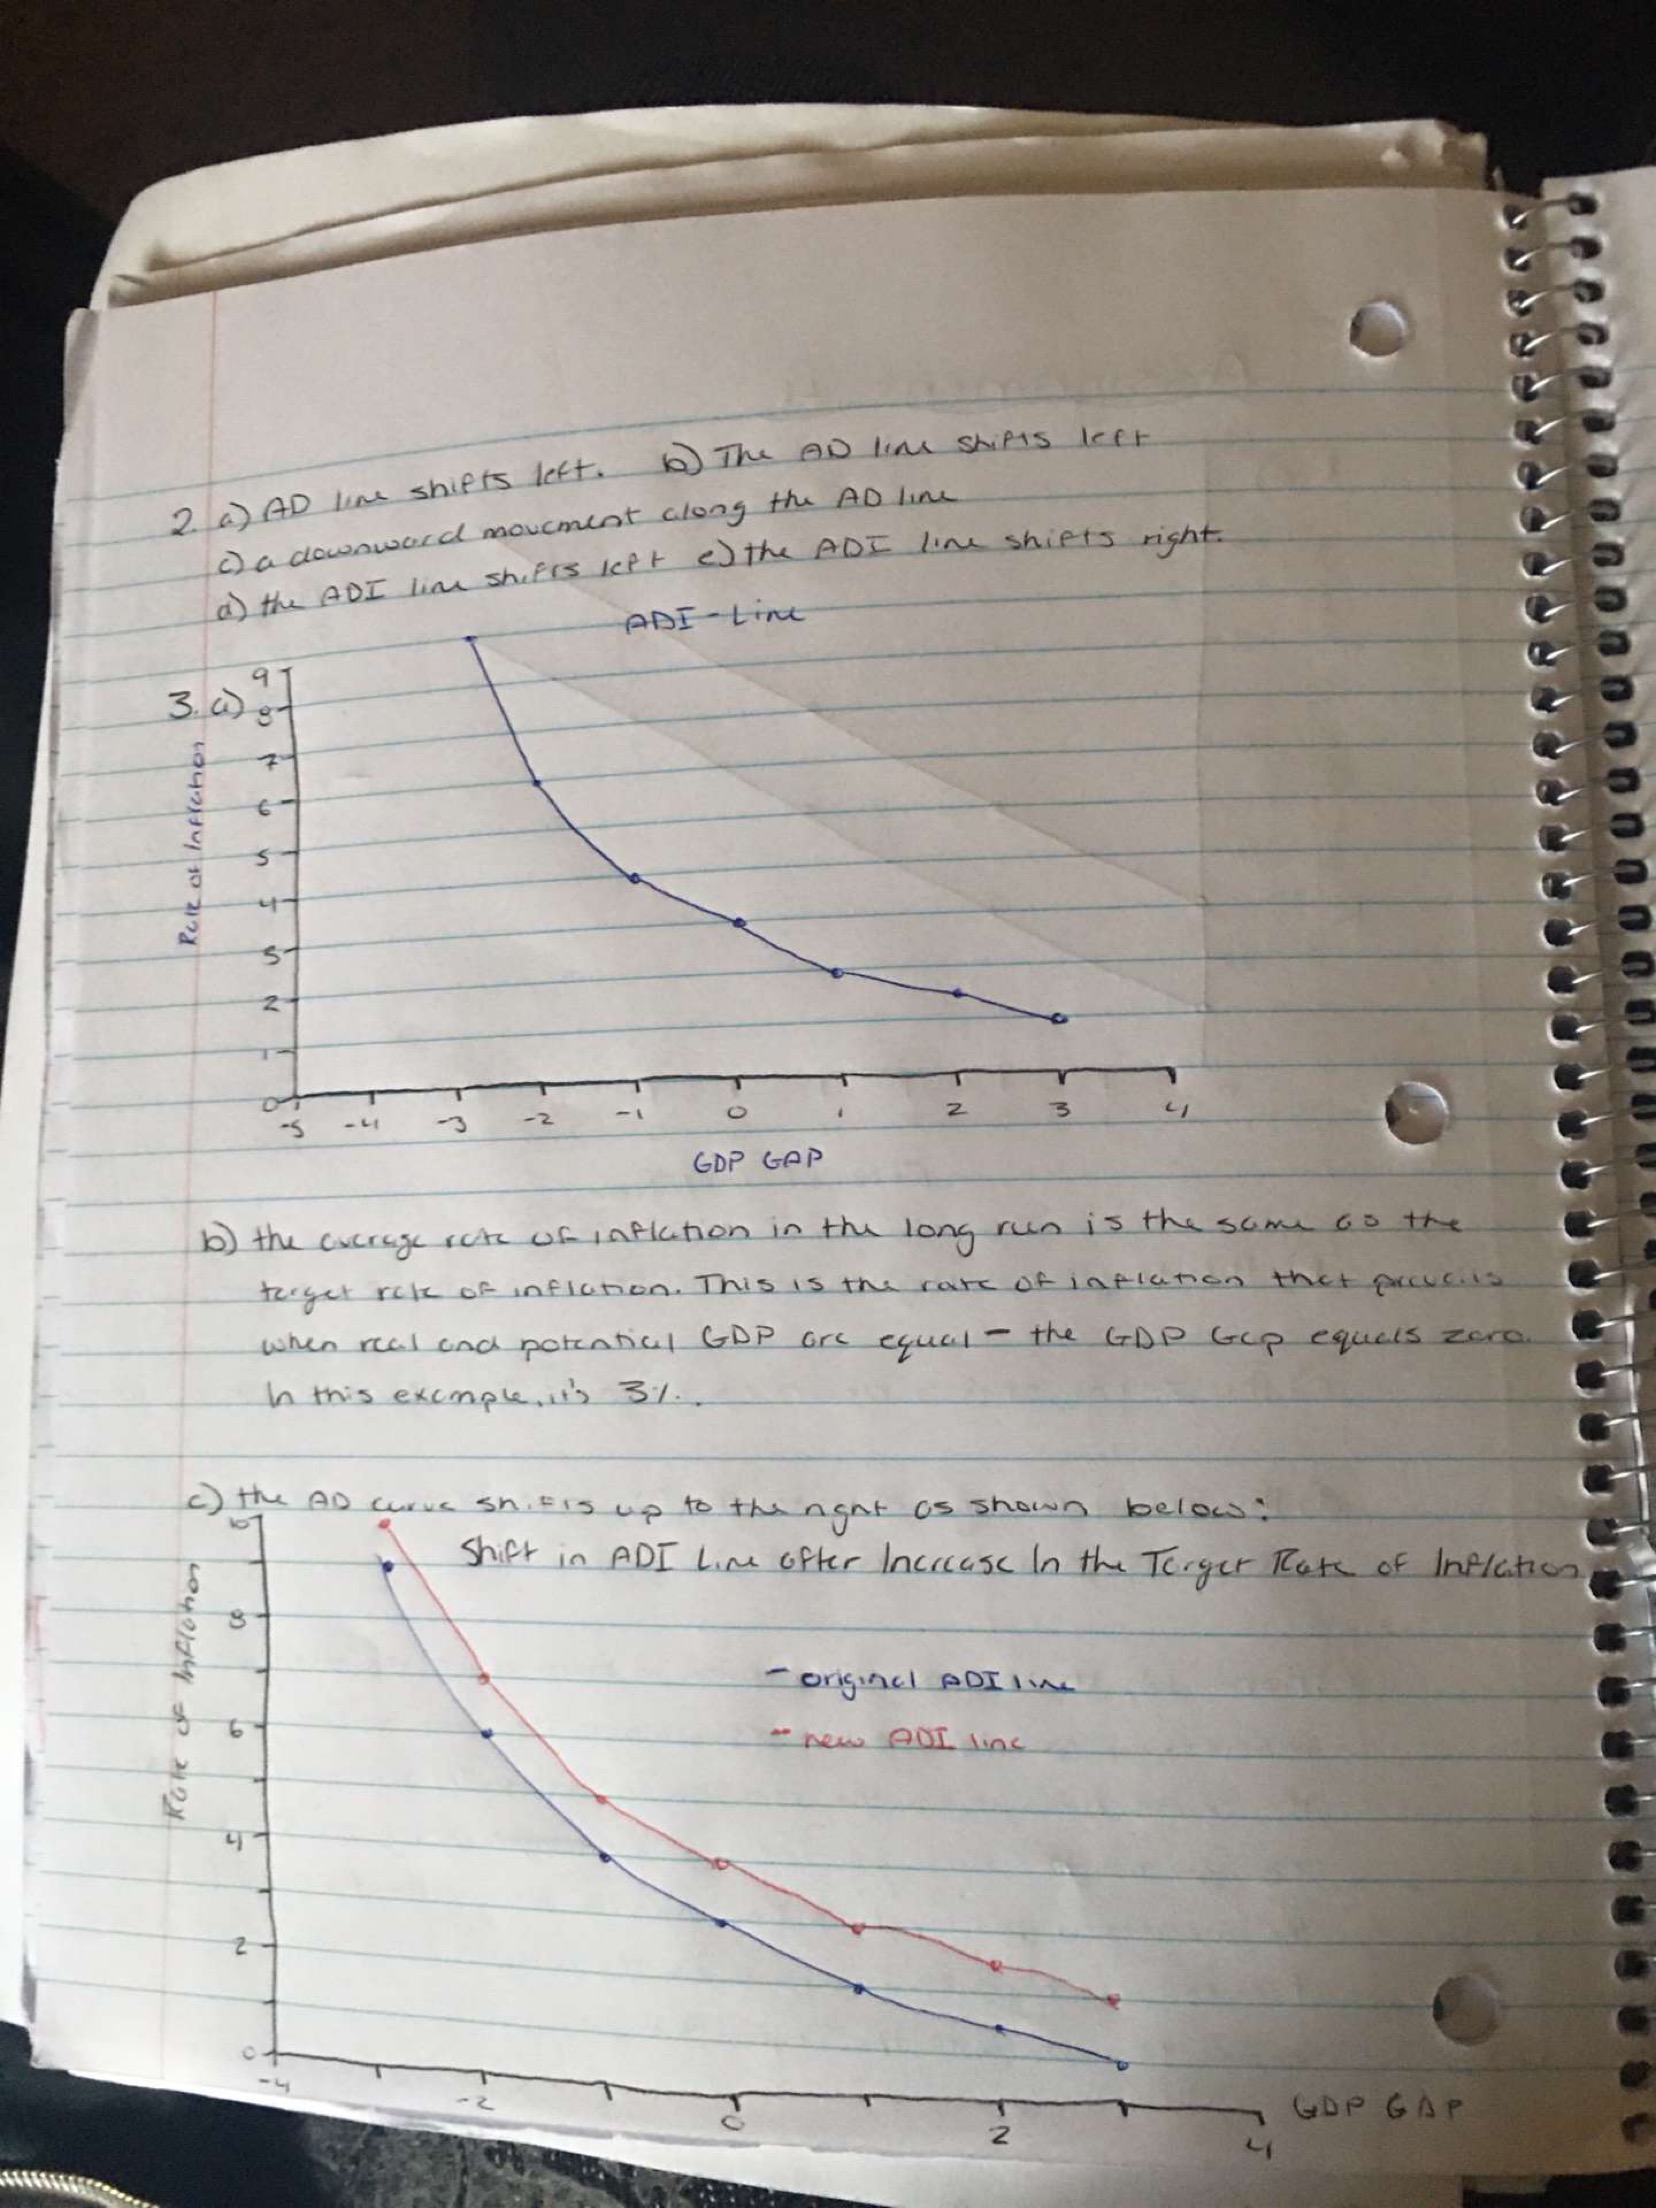 2. a) AD line shifts left. b) The AD line shifts left
c) a downward movement along the AD line
d) the ADI line shifts left e) the ADI line shifts right.
ADI-Line
3. a)
9
8
7
6
5
4
3
2
1
0
Rate of Inflation
-5 -4 -3 -2 -1 0 1 2 3 4
GDP GAP
b) the average rate of inflation in the long run is the same as the
target rate of inflation. This is the rate of inflation that prevails
when real and potential GDP are equal - the GDP Gap equals zero.
In this example, it's 3%.
c) the AD curve shifts up to the right as shown below:
Shift in ADI Line after Increase In the Target Rate of Inflation
10
8
6
4
2
0
Rate of Inflation
- original ADI line
- new ADI line
-4 -2 0 2 4
GDP GAP